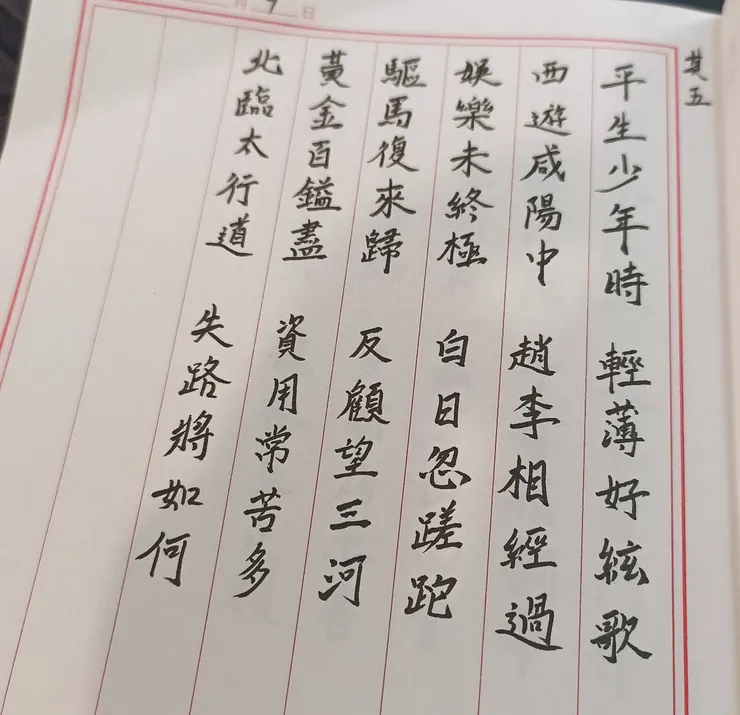 月 7 日
其五
平生少年時 輕薄好絃歌
西遊咸陽中 趙李相經過
娛樂未終極 白日忽蹉跑
驅馬復來歸 反顧望三河
黃金百鎰盡 資用常苦多
北臨太行道 失路將如何